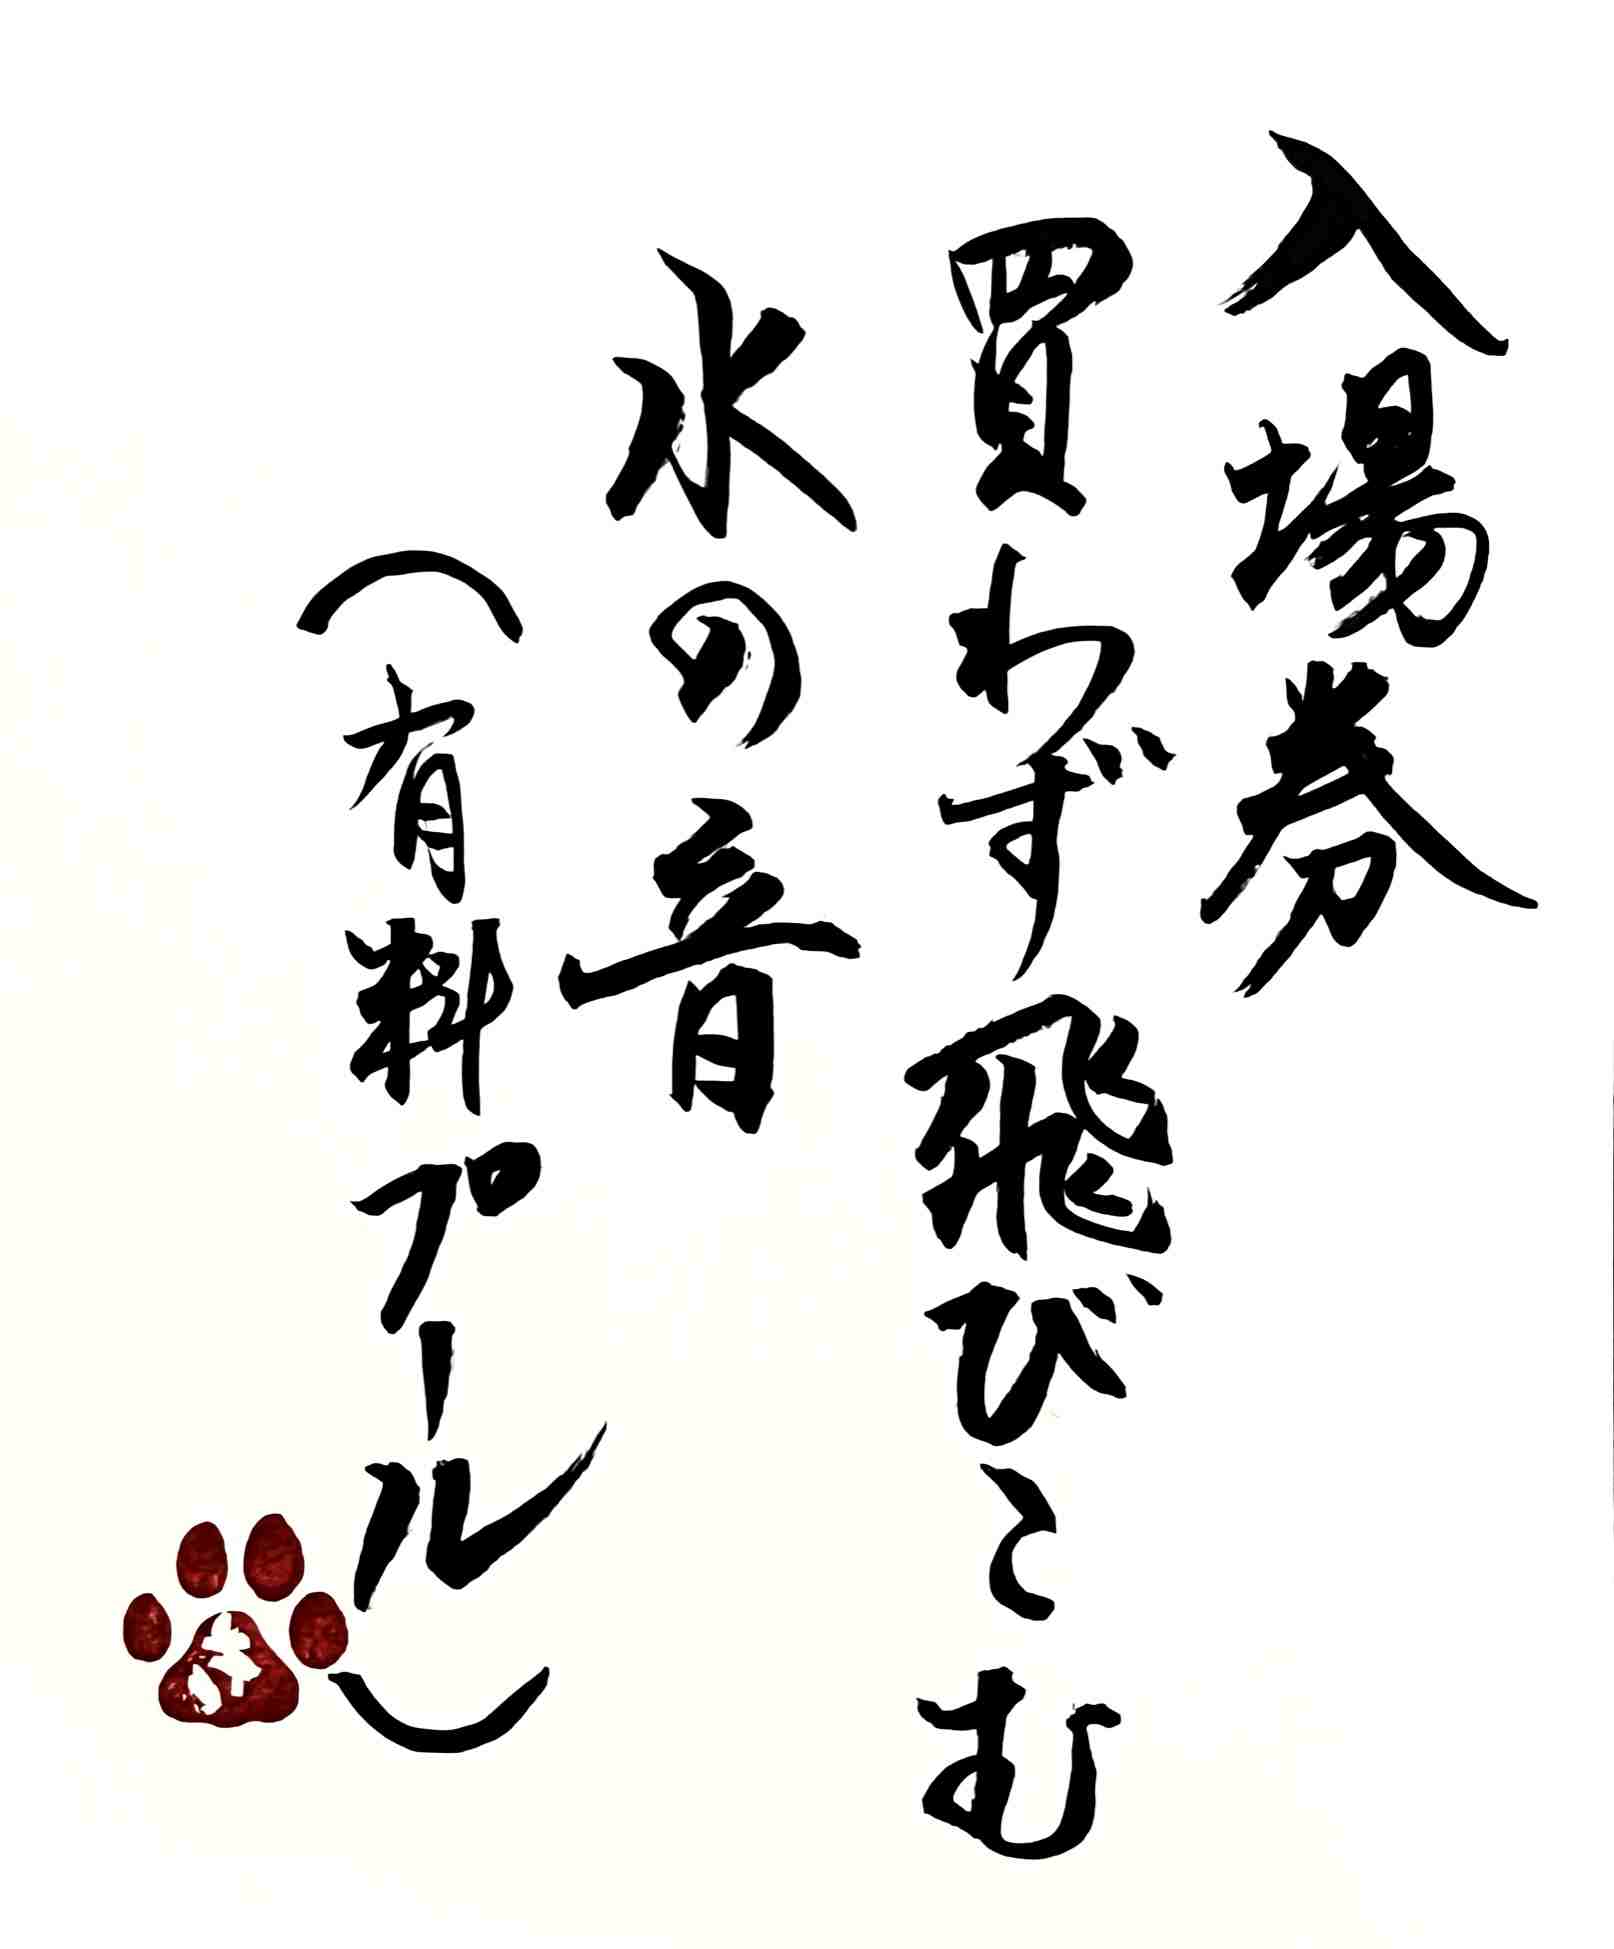 入場券
買わず飛びこむ
水の音
（有料プール）